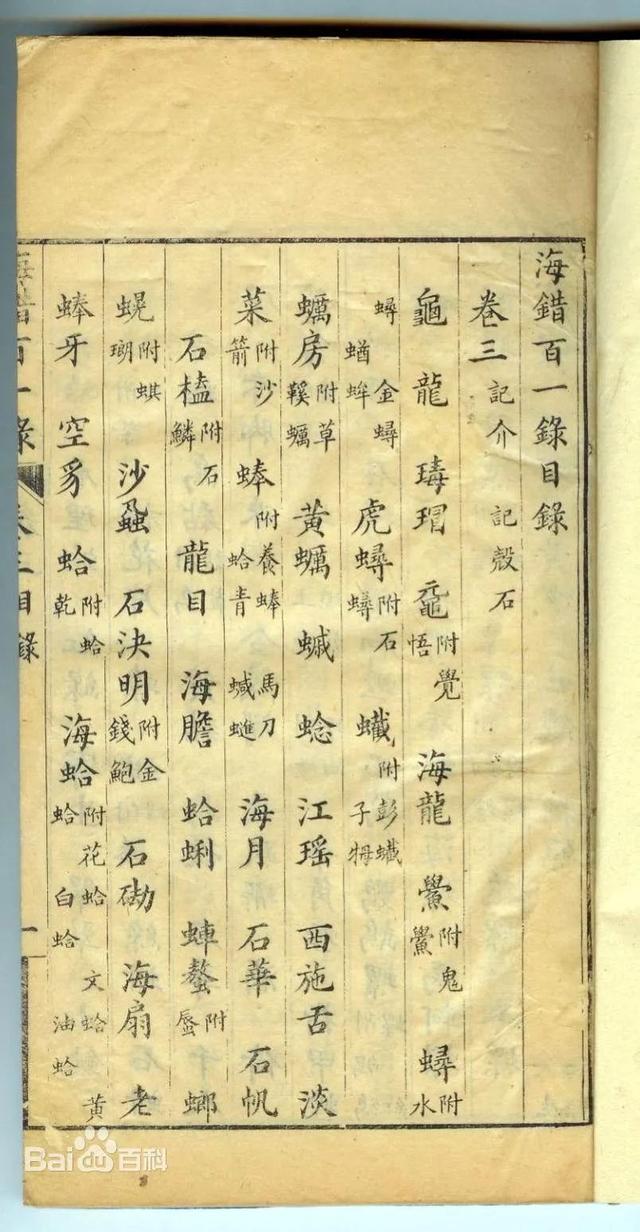 海錯百一錄目錄
卷三 記介 記殼石
龜 龍 瑇瑁 黿 附覺悟 海龍 鱟 附鬼鱟 蟳 附水
蟳 金蟳 蝤蛑 虎蟳 附石蟳 蠘 附彭蠘子
蠣房 附草鞵蠣 黃蠣 江瑤 西施舌 淡
菜 附沙箭 蜯 附養蜯 蛤青 馬刀 海月 石華 石帆
石榼 附石鱗 龍目 海膽 蛤蜊 蛼螯 附蜃 螂
附蜞瑚 沙蝨 石決明 附金錢鮑 石磡 海扇 老
蜯牙 空豸 蛤 附蛤乾 海蛤 附花蛤 文蛤 黃蛤 白蛤 油蛤
海錯百一錄 卷三目錄 一
Bai百科